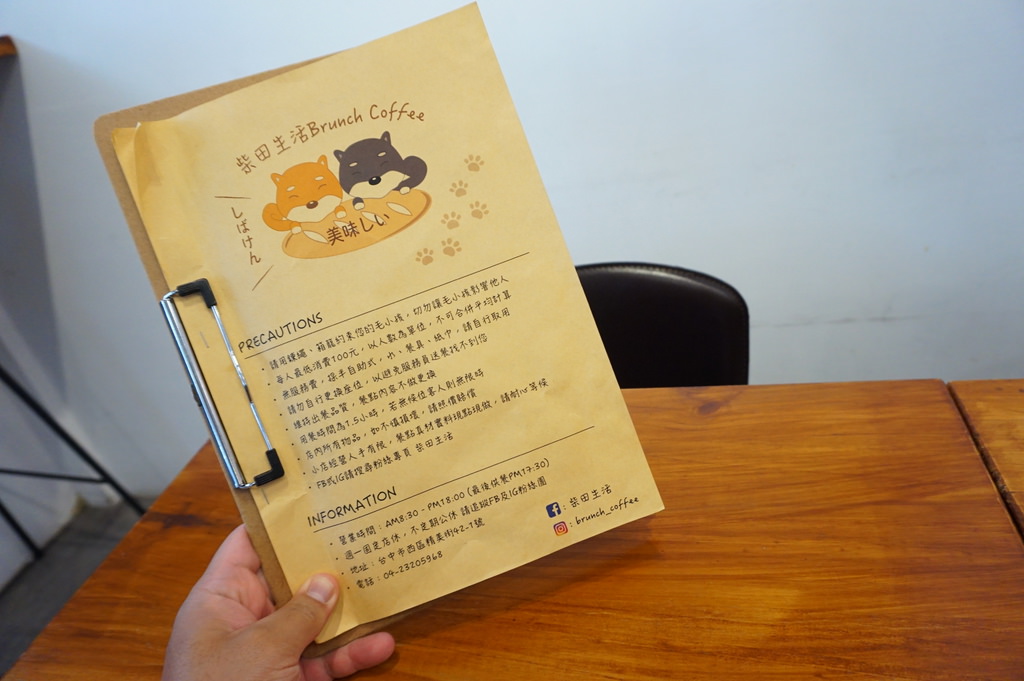 柴田生活Brunch Coffee
しばけん
美味しい
PRECAUTIONS
• 請用鍊繩、箱籠約束您的毛小孩，切勿讓毛小孩影響他人
• 每人最低消費100元，以人數為單位，不可合併平均計算
• 無服務費，採半自助式，水、餐具、紙巾，請自行取用
• 請勿自行更換座位，以避免服務員送餐找不到您
• 維持出餐品質，餐點內容不做更換
• 用餐時間為1.5小時，若無候位客人則無限時
• 店內所有物品，如不慎損壞，請照價賠償
• 小店經營人手有限，餐點真材實料現點現做，請耐心等候
• FB或IG請搜尋粉絲專頁 柴田生活
INFORMATION
• 營業時間：AM8:30 - PM18:00 (最後供餐PM17:30)
• 週一固定店休，不定期公休 請追蹤FB及IG粉絲團
• 地址：台中市西區精美街42-1號
• 電話：04-23205968
f : 柴田生活
: brunch_coffee